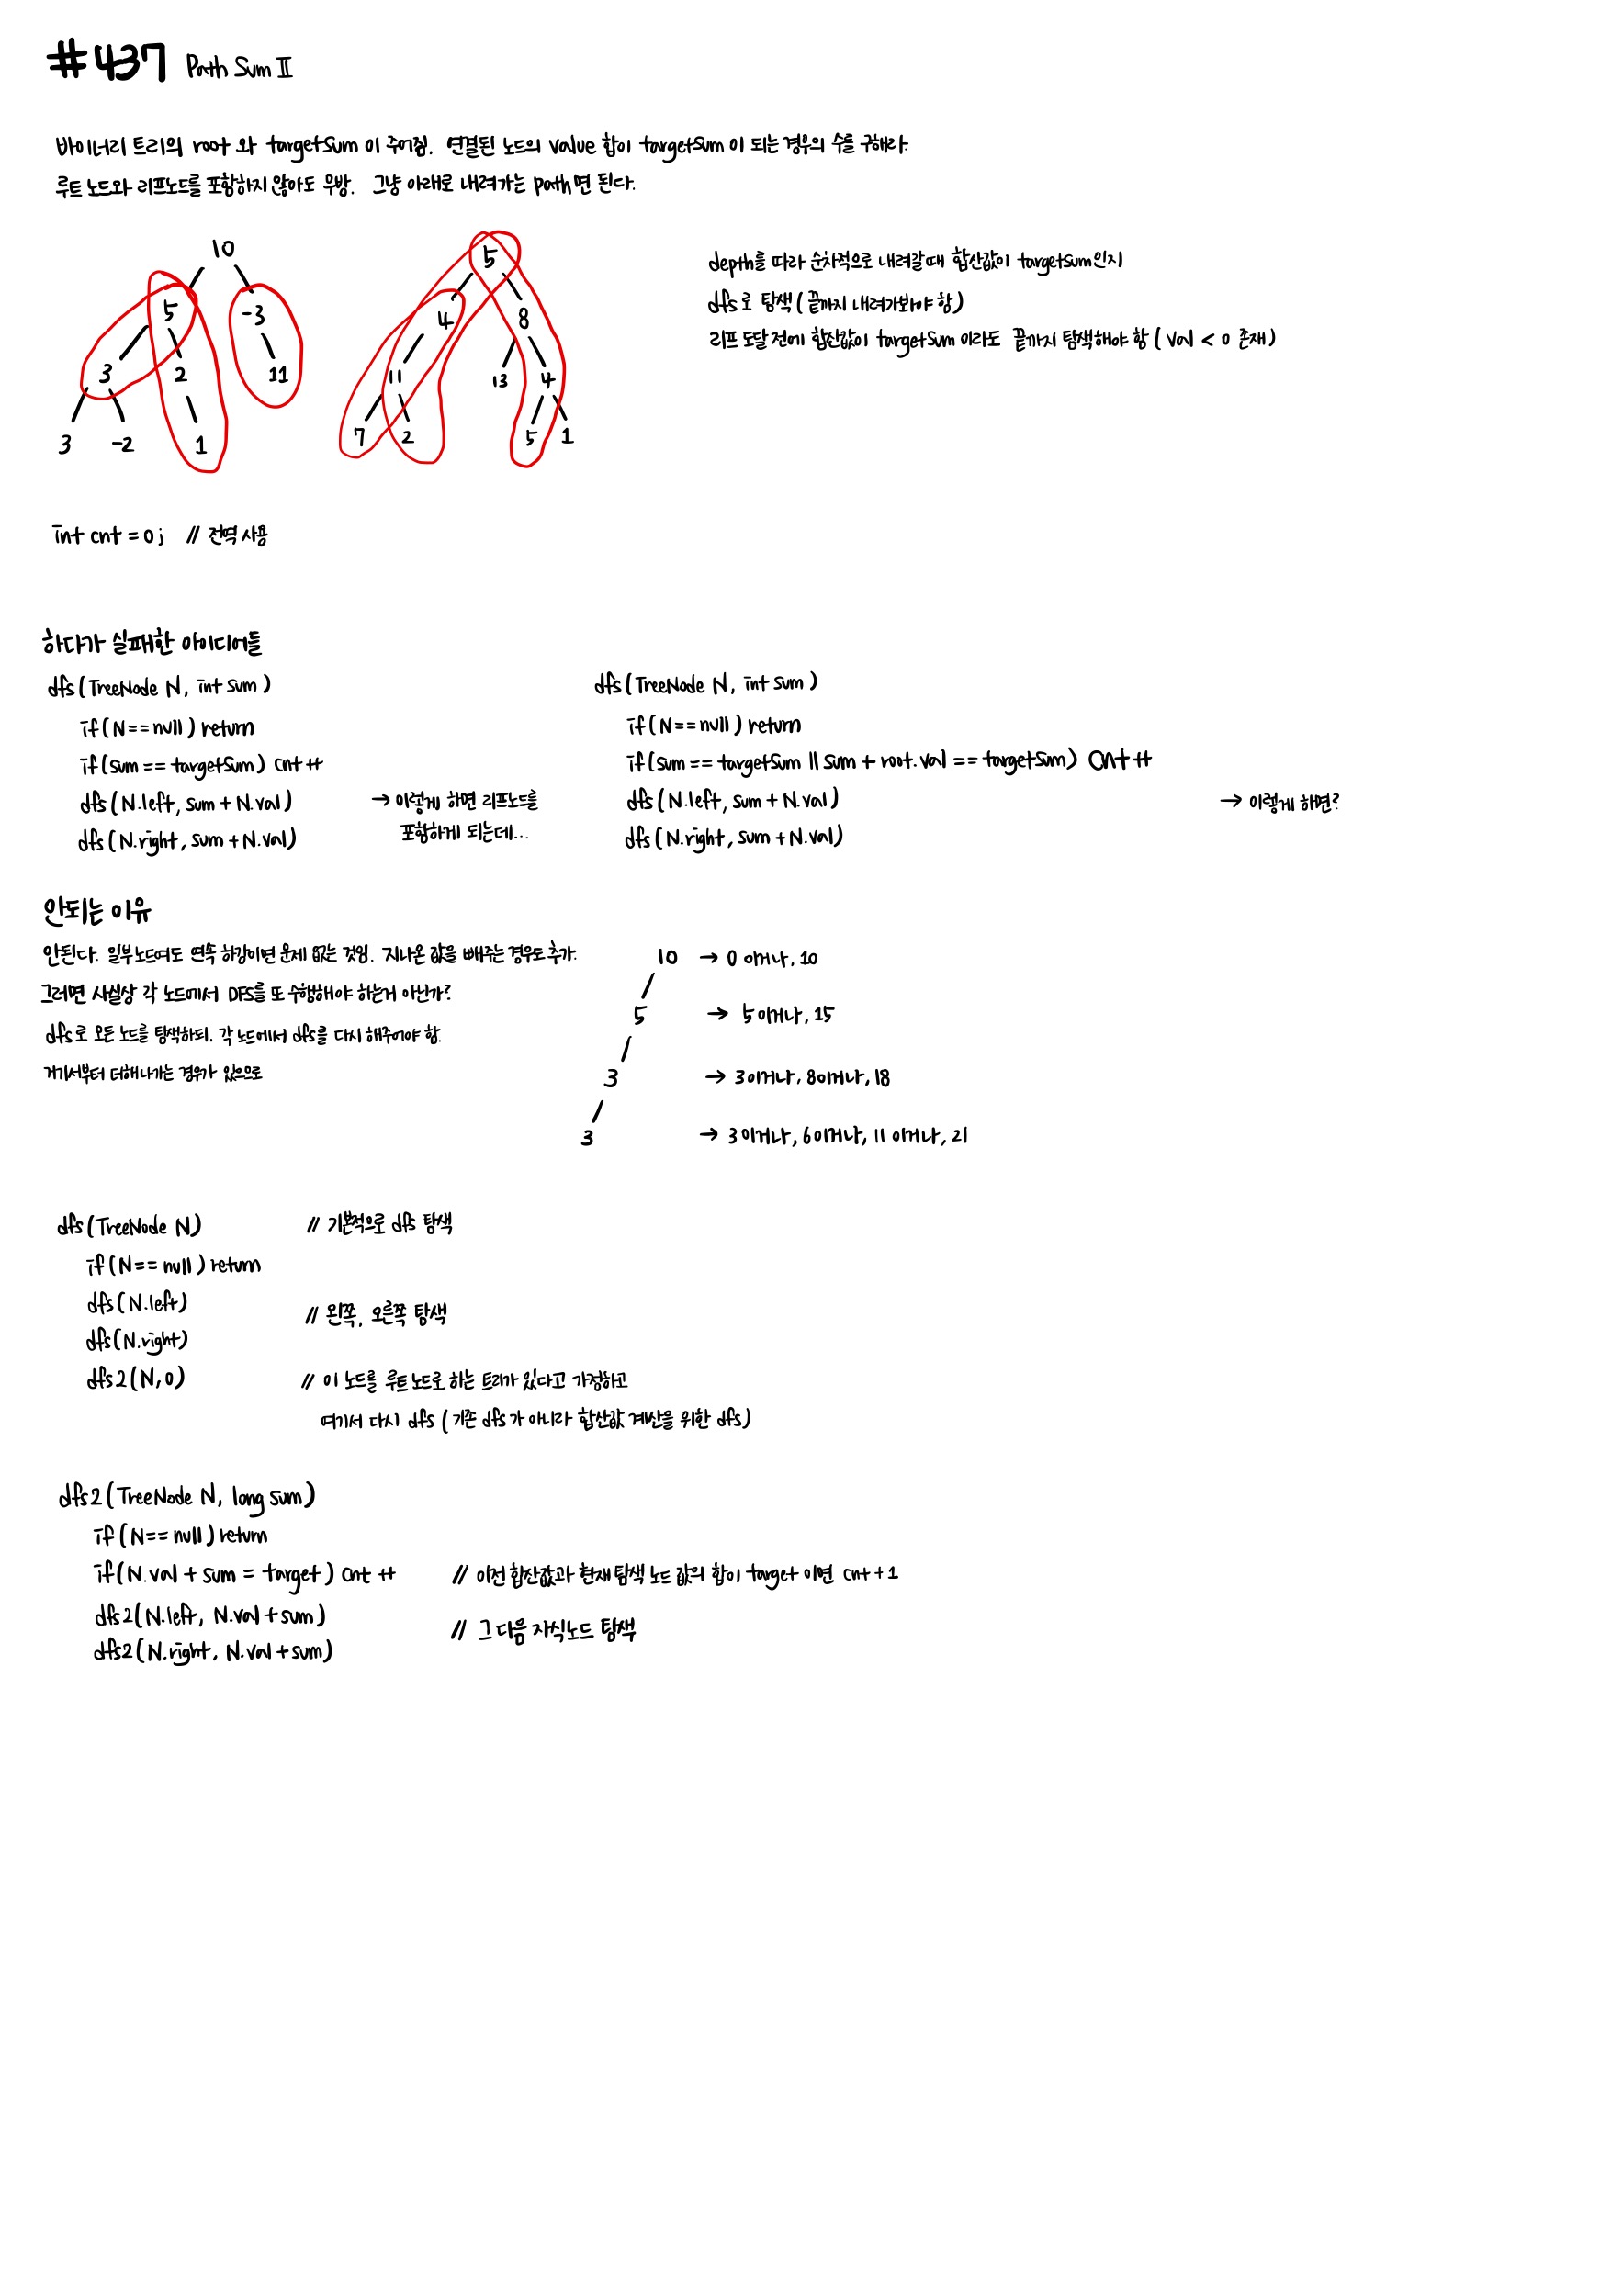 #437 Path Sum II
바이너리 트리의 root 와 targetSum 이 주어짐. 연결된 노드의 value 합이 targetSum 이 되는 경우의 수를 구해라.
루트 노드와 리프노드를 포함하지 않아도 무방. 그냥 아래로 내려가는 path면 된다.
10
5 -3
3 2 11
3 -2 1
5
4 8
11 13 4
7 2 5 1
depth를 따라 순차적으로 내려갈때 합산값이 targetSum인지
dfs로 탐색 (끝까지 내려가봐야 함)
리프 도달 전에 합산값이 targetSum 이라도 끝까지 탐색해야 함 (val < 0 존재)
int cnt = 0; // 전역 사용
하다가 실패한 아이디어들
dfs(TreeNode N, int sum)
if(N==null) return
if(sum == targetSum) cnt++
dfs(N.left, sum + N.val)
dfs(N.right, sum + N.val)
→ 이렇게 하면 리프노드를
포함하게 되는데...
dfs(TreeNode N, int sum)
if(N==null) return
if(sum == targetSum || sum + root.val == targetSum) cnt++
dfs(N.left, sum + N.val)
dfs(N.right, sum + N.val)
→ 이렇게 하면?
안되는 이유
안된다. 일부노드여도 연속 하강이면 문제 없는 것임. 지나온 값을 빼주는 경우도 추가.
그러면 사실상 각 노드에서 DFS를 또 수행해야 하는거 아닌가?
dfs로 모든 노드를 탐색하되, 각 노드에서 dfs를 다시 해주어야 함.
거기서부터 더해나가는 경우가 있으므로
10 → 0 이거나, 10
5 → 5 이거나, 15
3 → 3이거나, 8이거나, 18
3 → 3이거나, 6이거나, 11 이거나, 21
dfs(TreeNode N) // 기본적으로 dfs 탐색
if(N== null) return
dfs(N.left)
// 왼쪽, 오른쪽 탐색
dfs(N.right)
dfs2(N,0) // 이 노드를 루트 노드로 하는 트리가 있다고 가정하고
여기서 다시 dfs (기존 dfs가 아니라 합산값 계산을 위한 dfs)
dfs2(TreeNode N, long sum)
if(N== null) return
if(N.val + sum = target) cnt ++ // 이전 합산값과 현재 탐색 노드 값의 합이 target 이면 cnt+1
dfs2(N.left, N.val+sum)
// 그 다음 자식노드 탐색
dfs2(N.right, N.val+sum)